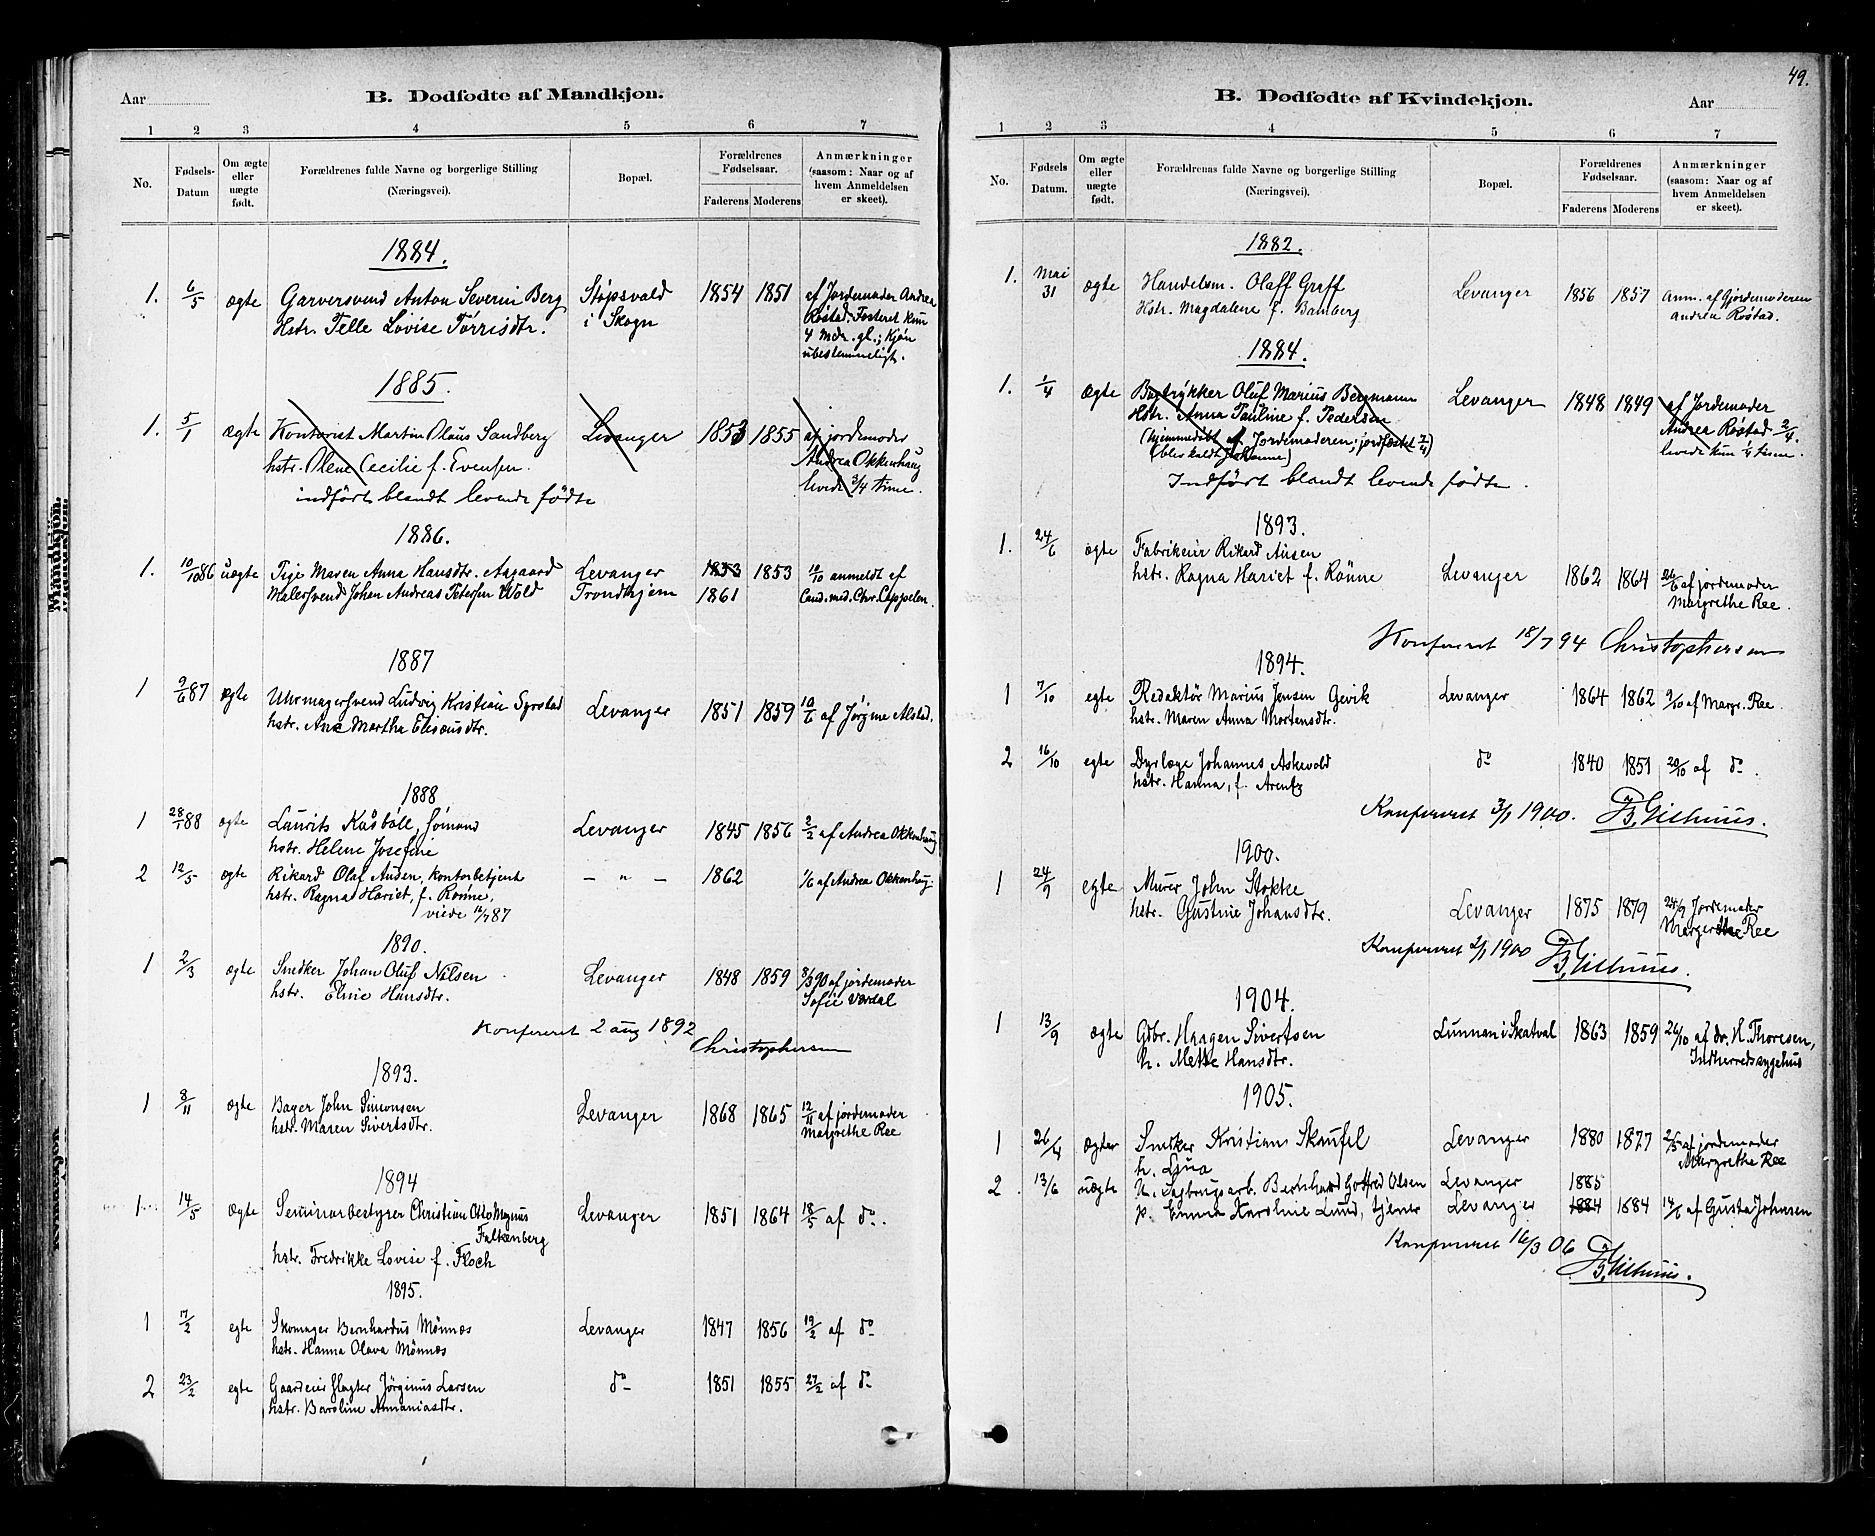 Aar
B. Dødfødte af Mandkjøn.
1 2 3 4 5 6 7
No.
Fødsels-
Datum
Om ægte
eller
uægte
født.
Forældrenes fulde Navne og borgerlige Stilling
(Næringsvei).
Bopæl.
Forældrenes
Fødselsaar.
Faderens Moderens
Anmærkninger
(saasom: Naar og af
hvem Anmeldelsen
er skeet).
1884.
1. 6/5 ægte Garversvend Anton Severin Berg Støpsvald 1854 1851 af Jordemoder Andrea
Hstr. Telle Lovise Tørrisdtr. i Skogn Røstad. Fosteret kun
4 Mdr. gl.; Kjøn
ubestemmeligt.
1885.
1. 5/1 ægte Kontorist Martin Olaus Sandberg Levanger 1853 1855 af jordemoder
hstr. Olene Cecilie f. Evensen. Andrea Okkenhaug
levede 3/4 time.
indført blandt levende fødte
1886.
1. 10/10 86 uægte Pige Maren Anna Hansdtr. Aagaard Levanger 1853 1853 10/10 anmeldt af
Malersvend Johan Andreas Petersen Wold Trondhjem 1861 Cand. med. Chr. Cappelen.
1887
1 9/6 87 ægte Uhrmagersvend Ludvig Kristian Syrstad Levanger 1851 1859 10/6 af Jørgine Alstad.
hstr. Ane Martha Eliseusdtr.
1888
1 28/1 88 ægte Laurits Kåsbøll, sømand Levanger 1845 1856 2/2 af Andrea Okkenhaug
hstr. Helene Josefine
2 12/5 ægte Rikard Olaf Ausen, kontorbetjent — " — 1862 1/6 af Andrea Okkenhaug.
hstr. Ragna Hariet, f. Rønne,
viede 12/7 87
1890.
1 2/3 ægte Snedker Johan Oluf Nilsen Levanger 1848 1859 8/3 90 af jordemoder
hstr. Eline Hansdtr. Sofie Værdal
Konfereret 2 aug 1892
Christophersen
1893.
1 8/11 ægte Bager John Simonsen Levanger 1868 1865 12/11 af jordemoder
hstr. Maren Sivertsdtr. Margrethe Ree
1894
1. 14/5 ægte Seminarbestyrer Christian Otto Magnus Levanger 1851 1864 18/5 af do.
Falkenberg
hstr. Fredrikke Lovise f. Floch
1895.
1 17/2 egte Skomager Bernhardus Mønnæs Levanger 1847 1856 19/2 af do
hstr. Hanna Olava Mønnæs
2 23/2 egte Gaardeier slagter Jørginus Larsen do 1851 1855 27/2 af do
hstr. Baroline Ananiasdtr.
49.
B. Dødfødte af Kvindekjøn.
Aar
1 2 3 4 5 6 7
No.
Fødsels
Datum.
Om ægte
eller
uægte
født.
Forældrenas fulde Navne og borgerlige Stilling
(Næringsvei).
Bopæl.
Forældrenes
Fødselsaar.
Faderens Moderens
Anmærkninger
(saasom: Naar og af
hvem Anmeldelsen
er skeet).
1882.
1. Mai 31 ægte Handelsm. Olaff Graff Levanger 1856 1857 Anm. af Gjordemoderen
Hstr. Magdalene f. Bamberg Andrea Røstad.
1884.
1. 1/4 Ægte Bogtrykker Oluf Marius Bergmann Levanger 1848 1849 af Jordemoder
Hstr. Anna Pauline f. Pedersen Andrea Røstad 2/4.
(hjemmedøbt af Jordemoderen; jordfæstet 2/4) levede kun 1/4 time.
(blev kaldt Johanne)
Indført blandt levende fødte.
1893.
1. 24/6 ægte Fabrikeier Rikard Ausen
hstr. Ragna Hariet f. Rønne Levanger 1862 1864 26/6 af jordemoder
Margrethe Ree.
Konfereret 18/7 94 Christophersen
1894.
1 7/10 egte Redaktør Marius Jensen Gevik Levanger 1864 1862 9/10 af Margr. Ree.
hstr. Maren Anna Mortensdtr.
2 16/10 egte Dyrlæge Johannes Askevold do 1840 1851 20/10 af do.
hstr. Hanna, f. Arentz
Konfereret 3/1 1900. B. Gilhuus.
1900.
1 24/9 egte Murer John Stokke
hstr. Gustine Johansdtr. Levanger 1875 1879 24/9 Jordemoder
Margrethe Ree
Konfereret 2/1 1900 B. Gilhuus.
1904.
1 13/9 ægte Gdbr. Haagen Sivertsen Lunnan i Skatval 1863 1859 26/10 af dr. H. Thoresen,
h. Mette Hansdtr. Indherredssygehus
1905.
1 26/4 ægte Snekker Kristian Skaufel Levanger 1880 1877 2/5 af jordemoder
h. Lina Margrethe Ree
2. 13/6 uægte U. Sagbrugsarb. Bernhard Gotfred Olsen Levanger 1885
p. Emma Karoline Lund, tjener Levanger 1884 1884 14/6 af Gusta Johnsen
Konfereret 16/3 06
B. Gilhuus.
Mandkjøn.
Kvindekjøn